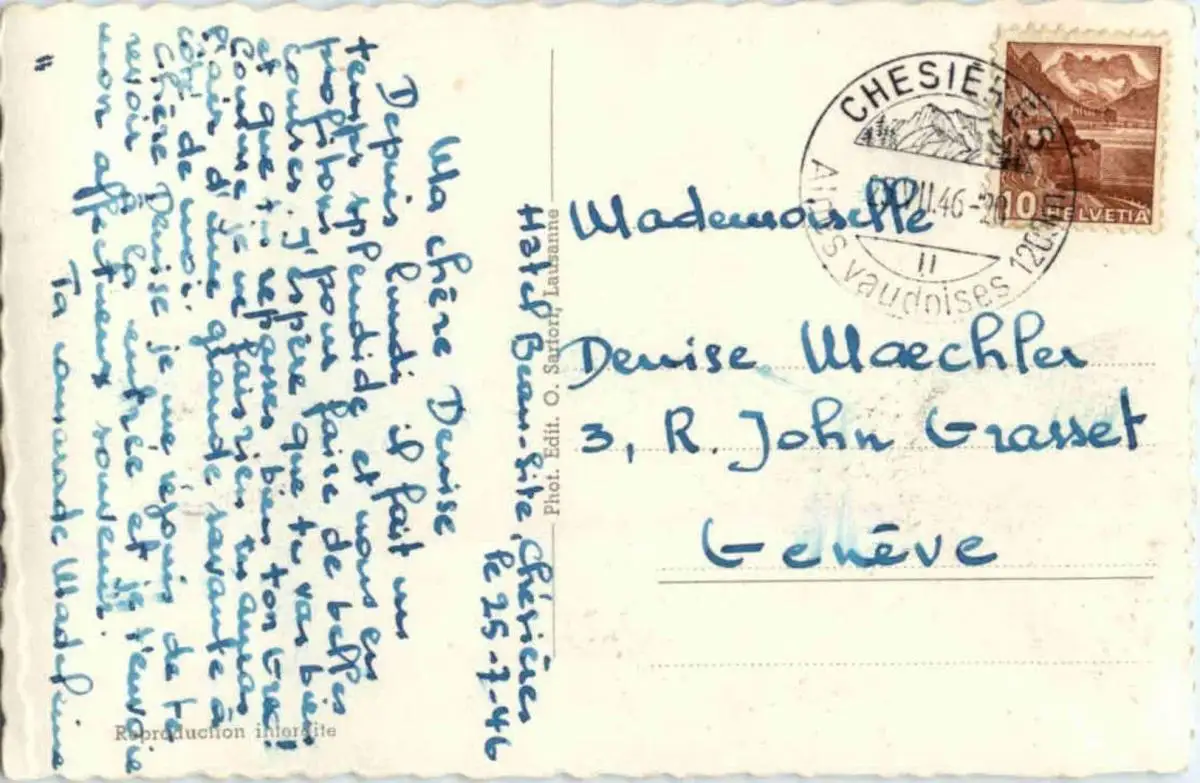 Hotel Beau-Site, Chésières
le 25-7-46
Ma chère Denise
Depuis lundi il fait un
temps splendide et nous en
profitons pour faire de belles
courses. J'espère que tu vas bien
et que tu repasses bien ton Grec!
Comme je ne fais rien tu auras
l'air d'une grande savante à
côté de moi.
Chère Denise je me réjouis de te
revoir à la rentrée et je t'envoie
mon affectueux souvenir.
Ta camarade Madeleine
Reproduction interdite
Phot. Edit. O. Sartori, Lausanne
CHESIÈRES
VII.46-20
Alpes vaudoises 1200m
10 HELVETIA
Mademoiselle
Denise Maechler
3, R. John Grasset
Genève